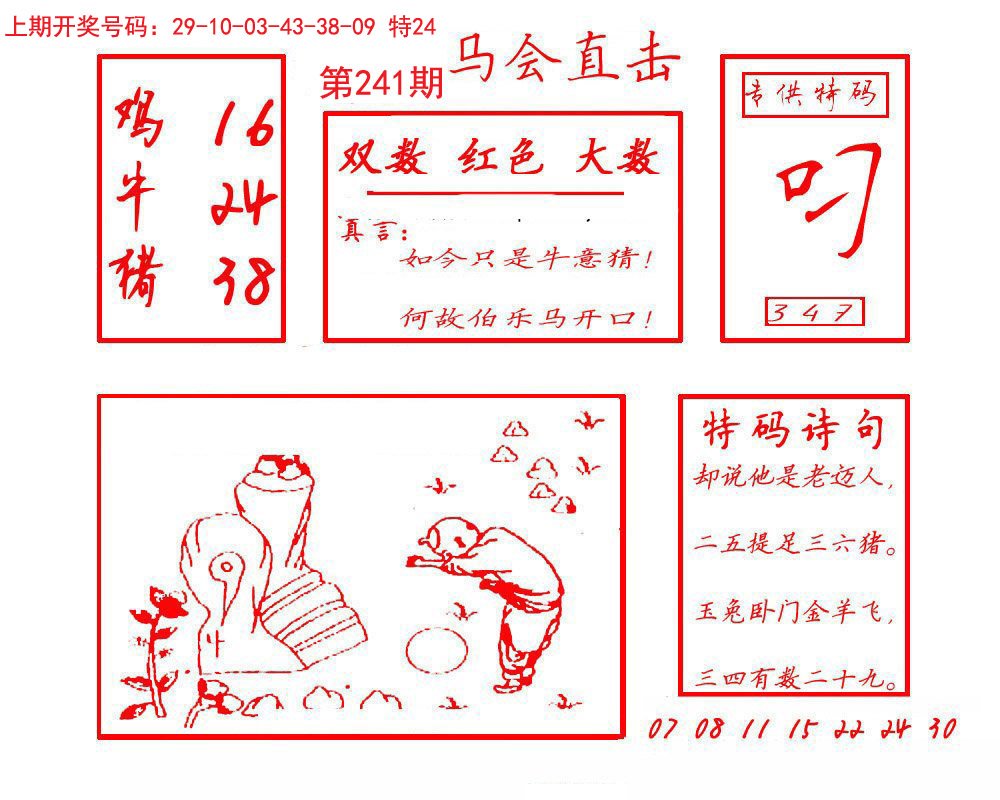 上期开奖号码：29-10-03-43-38-09 特24
第241期 马会直击
鸡 16
牛 24
猪 38
双数 红色 大数
真言：
如今只是牛意猜！
何故伯乐马开口！
专供特码
叼
3 4 7
特码诗句
却说他是老迈人，
二五提足三六猪。
玉兔卧门金羊飞，
三四有数二十九。
07 08 11 15 22 24 30